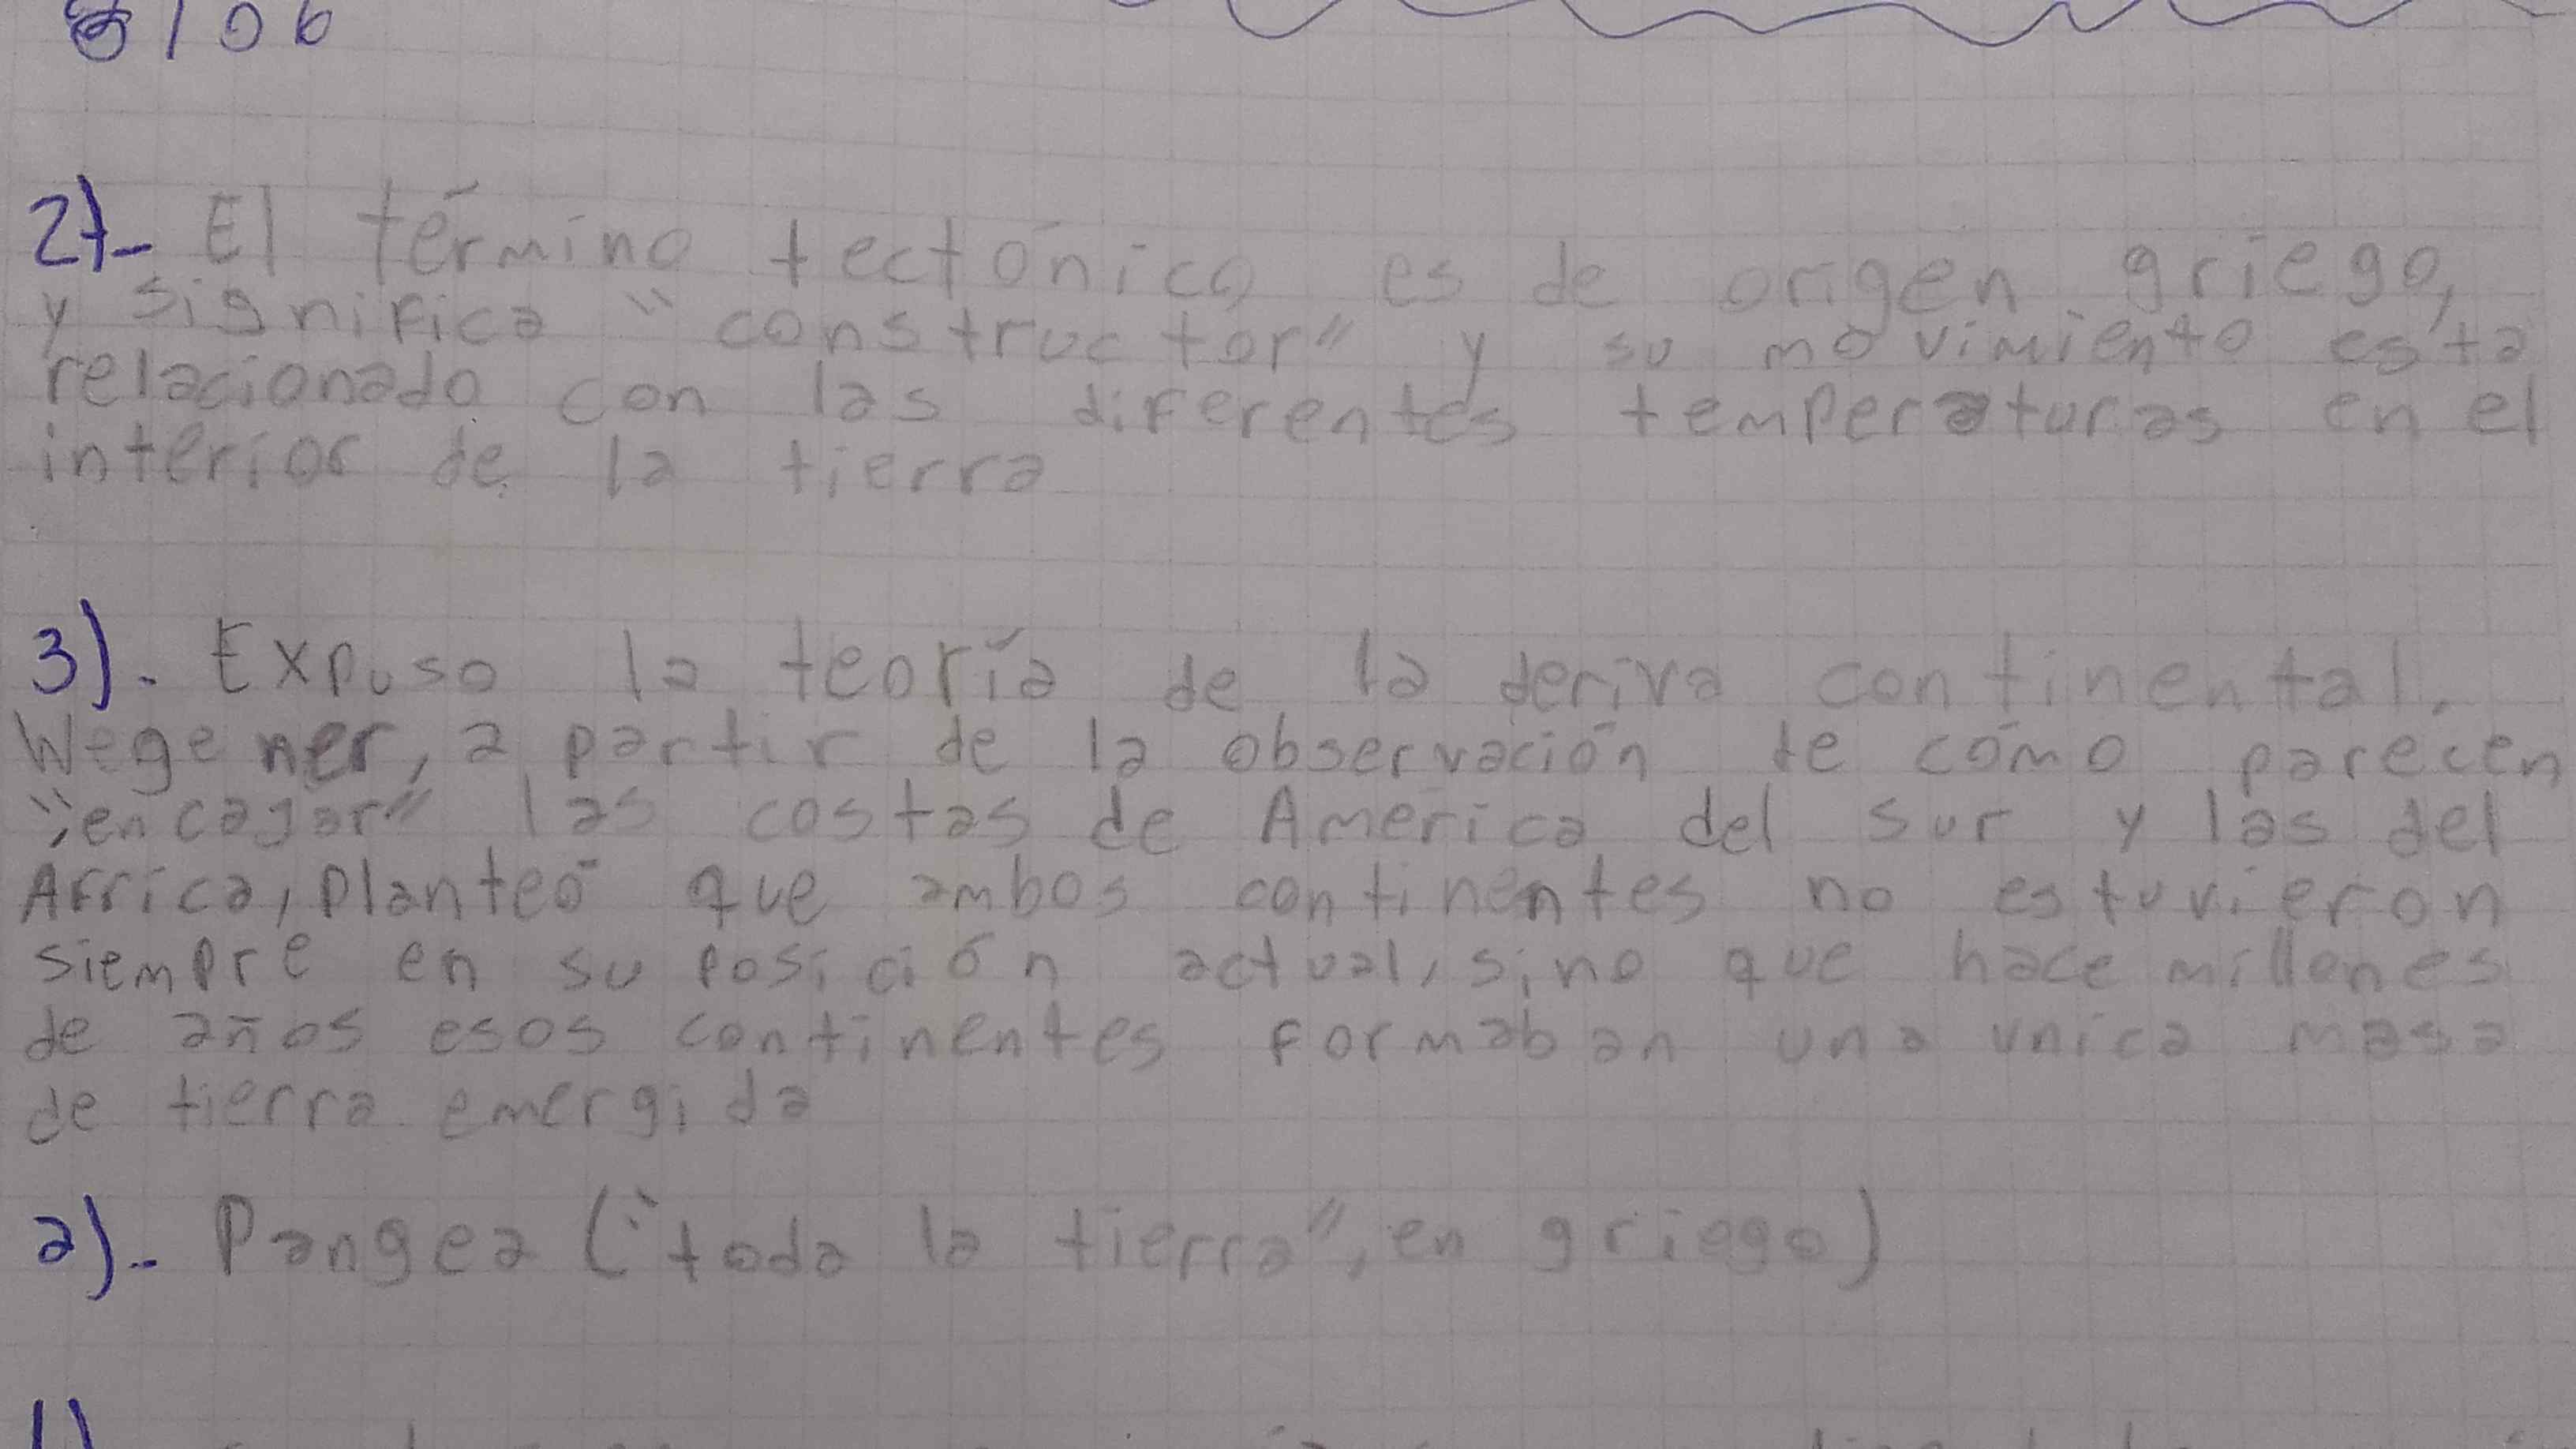 8106
2)- El término tectónico es de origen griego,
y significa "constructor" y su movimiento está
relacionado con las diferentes temperaturas en el
interior de la tierra
3). Expuso la teoría de la deriva continental.
Wegener, a partir de la observación de cómo parecen
"encagar" las costas de América del sur y las del
Africa, planteó que ambos continentes no estuvieron
siempre en su posición actual, sino que hace millones
de años esos continentes formaban una unica masa
de tierra emergida
a)- Pangea ("toda la tierra", en griego)